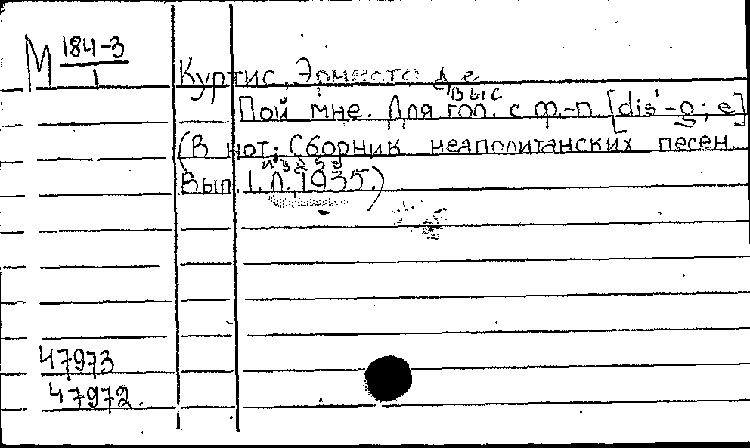 М 184-3
1
Куртис, Эрнесто де
Пой мне. Для выс. гол. с ф.-п. [dis'-g; e]
(В нот: Сборник неаполитанских песен.
Вып. 1. Л., 1935.)
47973
47972.